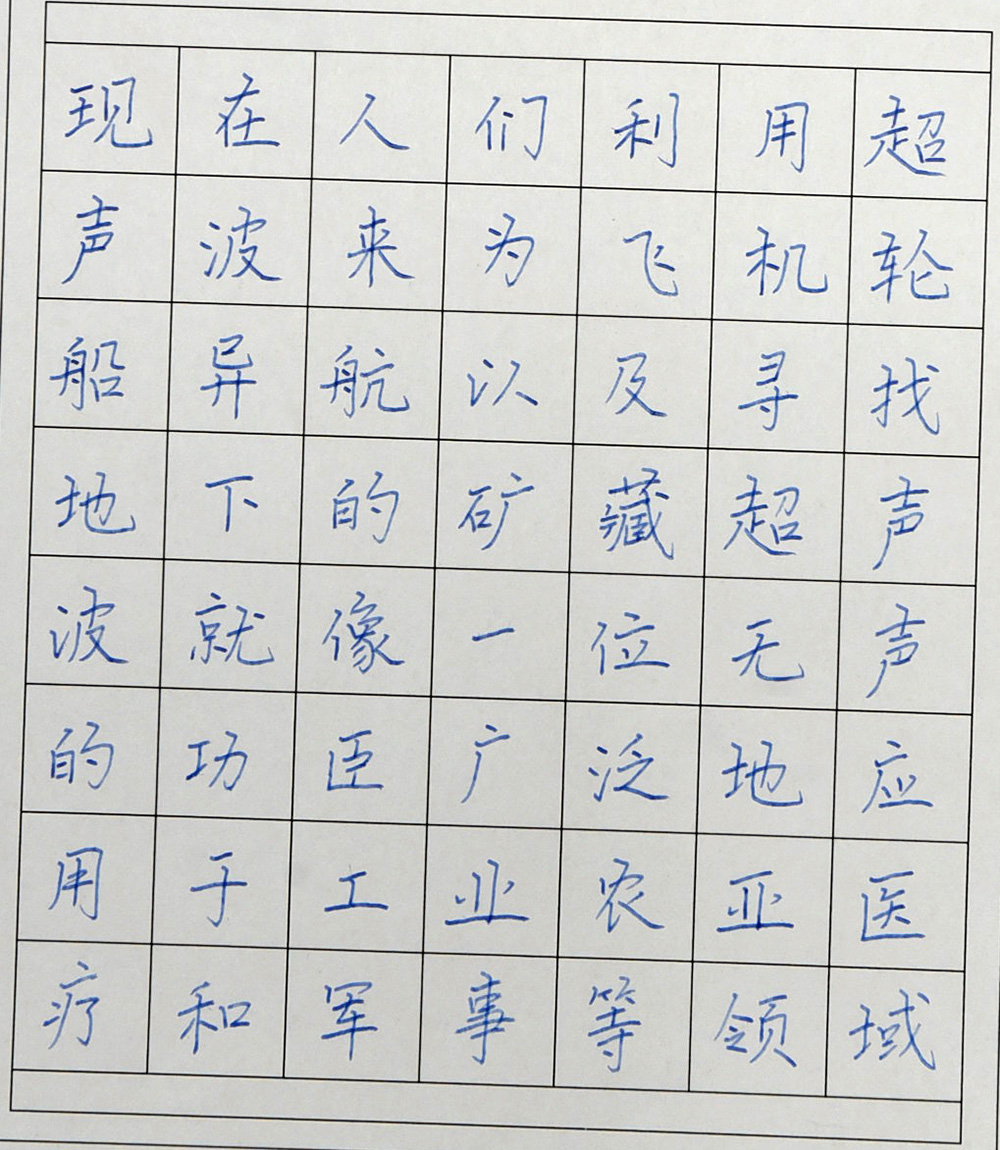 现在人们利用超
声波来为飞机轮
船异航以及寻找
地下的矿藏超声
波就像一位无声
的功臣广泛地应
用于工业农亚医
疗和军事等领域